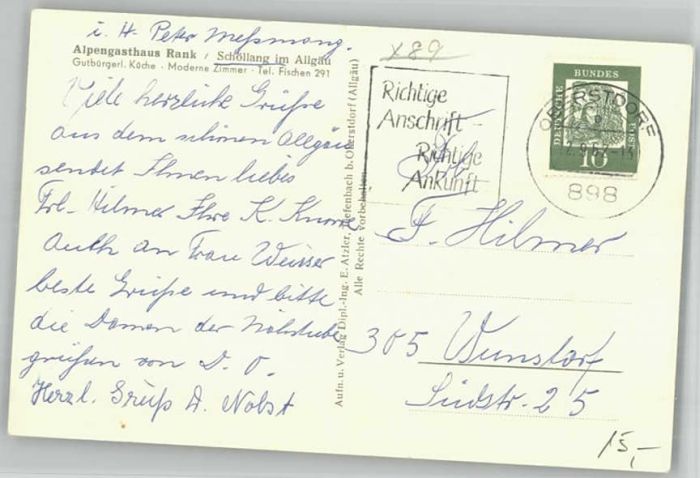 i. H. Peter Meßmang.
Alpengasthaus Rank / Schöllang im Allgäu
Gutbürgerl. Küche · Moderne Zimmer · Tel. Fischen 291
Viele herzliche Grüße
aus dem schönen Allgäu
sendet Ihnen liebes
Frl. Hilmer Ihre K. Knorr
Auch an Frau Weisser
beste Grüße und bitte
die Damen der Nähstube
grüßen von D. O.
Herzl. Gruß A. Nobst
Aufn. u. Verlag Dipl.-Ing. E. Atzler, Tiefenbach b. Oberstdorf (Allgäu)
Alle Rechte vorbehalten
x89
Richtige
Anschrift -
Richtige
Ankunft
OBERSTDORF
898
DEUTSCHE BUNDESPOST
10
Frl.
F. Hilmer
305 Wunstorf
Südstr. 25
15,-